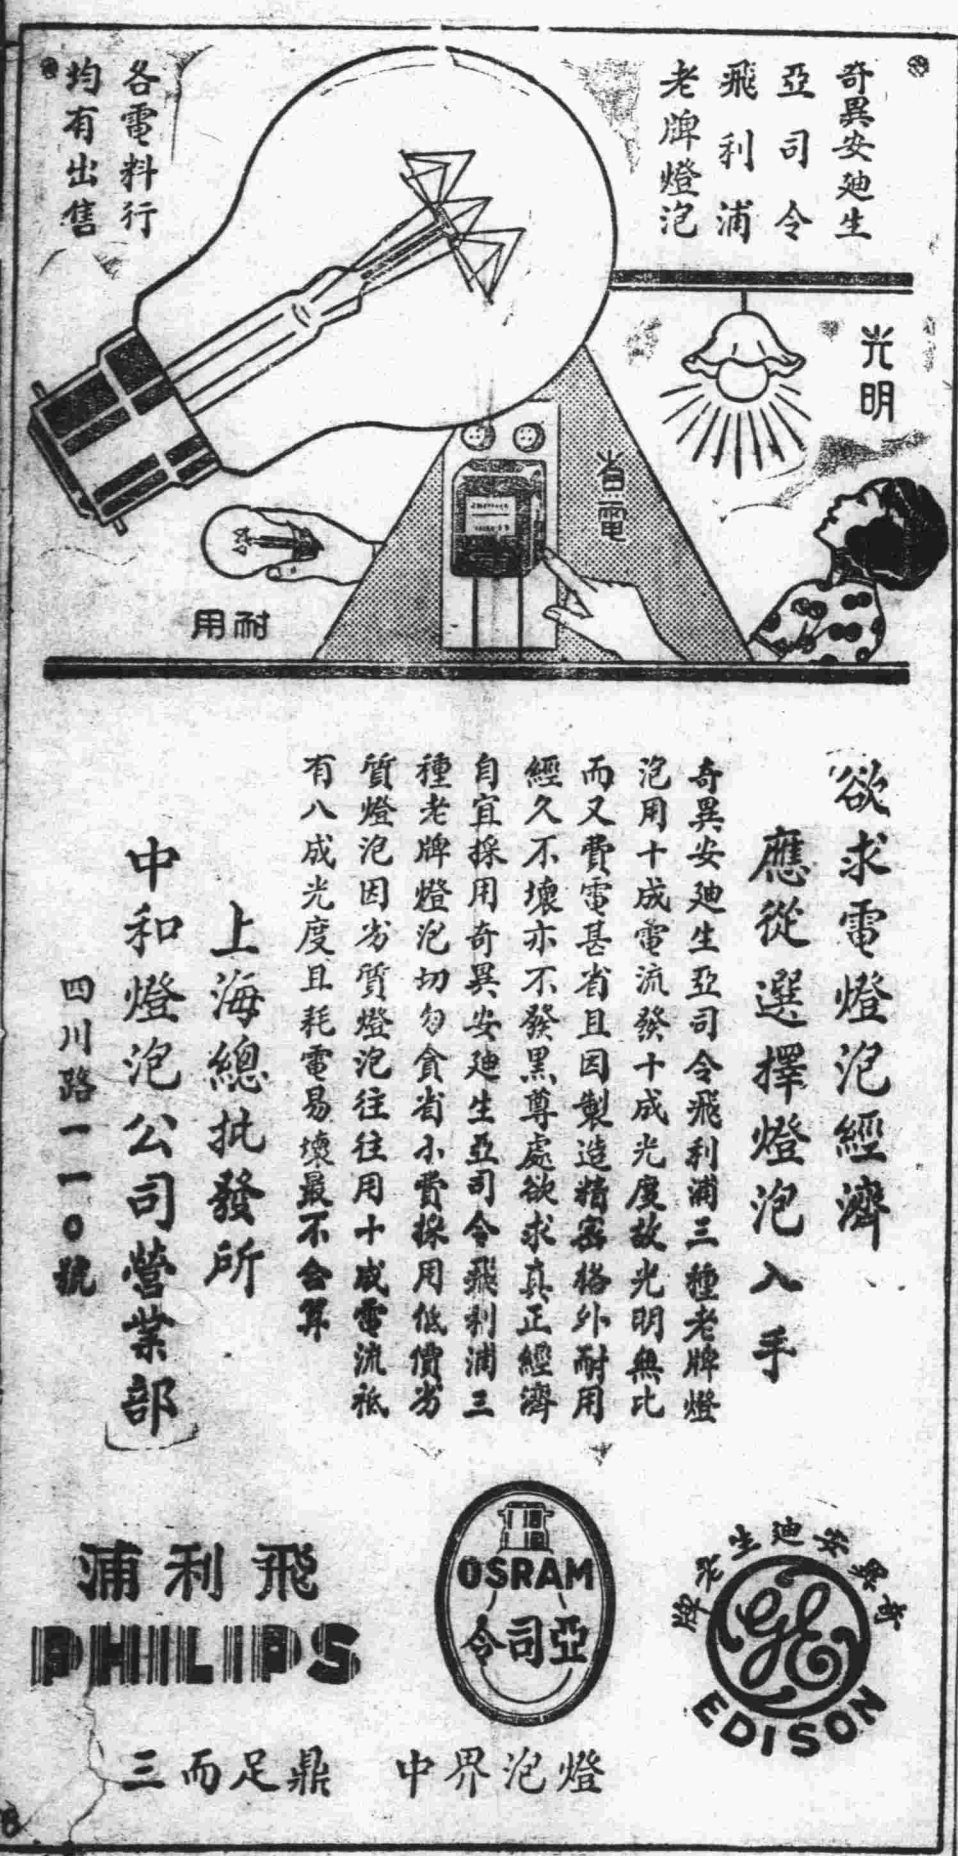 奇異安廸生
亞司令
飛利浦
老牌燈泡
各電料行
均有出售
光明
省電
耐用
欲求電燈泡經濟
應從選擇燈泡入手
奇異安廸生亞司令飛利浦三種老牌燈
泡用十成電流發十成光度故光明無比
而又費電甚省且因製造精密格外耐用
經久不壞亦不發黑尊處欲求真正經濟
自宜採用奇異安廸生亞司令飛利浦三
種老牌燈泡切勿貪省小費採用低價劣
質燈泡因劣質燈泡往往用十成電流祗
有八成光度且耗電易壞最不合算
上海總批發所
中和燈泡公司營業部
四川路一一〇號
奇異安廸生牌
GE
EDISON
OSRAM
亞司令
飛利浦
PHILIPS
燈泡界中
鼎足而三